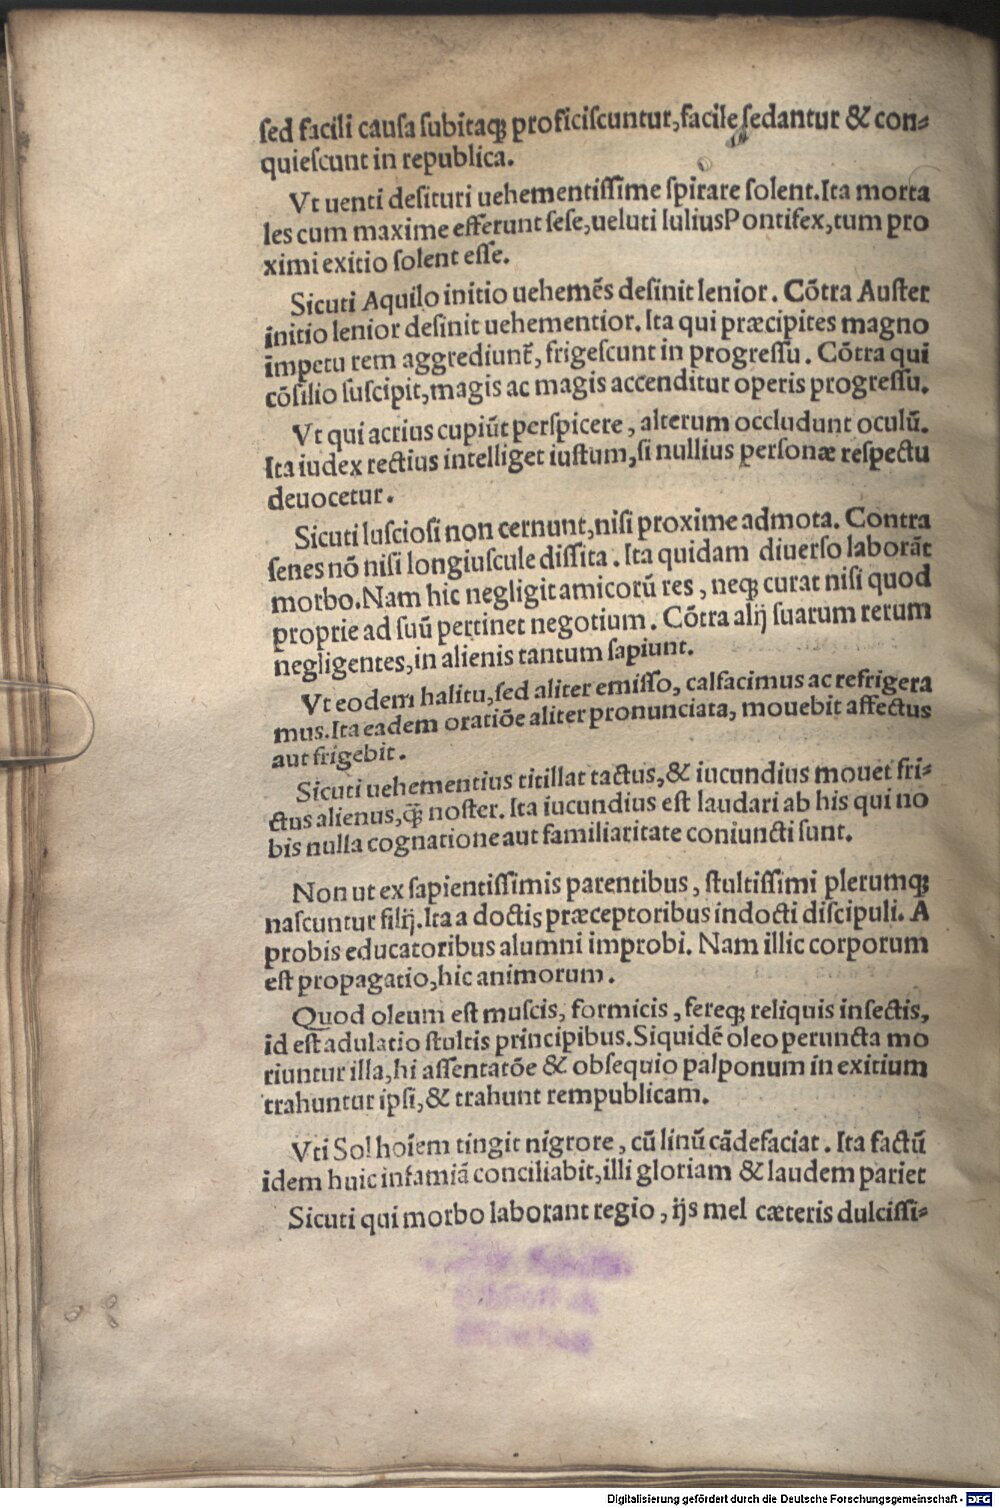 sed facili causa subitaq; proficiscuntur, facile sedantur & con-
quiescunt in republica.
Vt uenti desituri uehementissime spirare solent. Ita morta
les cum maxime efferunt sese, ueluti Iulius Pontifex, tum pro
ximi exitio solent esse.
Sicuti Aquilo initio uehemēs desinit lenior. Cōtra Auster
initio lenior desinit uehementior. Ita qui præcipites magno
impetu rem aggrediunt̃, frigescunt in progressu. Cōtra qui
cōsilio suscipit, magis ac magis accenditur operis progressu.
Vt qui acrius cupiūt perspicere, alterum occludunt oculū.
Ita iudex rectius intelliget iustum, si nullius personæ respectu
deuocetur.
Sicuti lusciosi non cernunt, nisi proxime admota. Contra
senes nō nisi longiuscule dissita. Ita quidam diuerso laborāt
morbo. Nam hic negligit amicorū res, neq; curat nisi quod
proprie ad suū pertinet negotium. Cōtra alij suarum rerum
negligentes, in alienis tantum sapiunt.
Vt eodem halitu, sed aliter emisso, calfacimus ac refrigera
mus. Ita eadem oratiōe aliter pronunciata, mouebit affectus
aut frigebit.
Sicuti uehementius titillat tactus, & iucundius mouet fri-
ctus alienus, q̃ noster. Ita iucundius est laudari ab his qui no
bis nulla cognatione aut familiaritate coniuncti sunt.
Non ut ex sapientissimis parentibus, stultissimi plerumq;
nascuntur filij. Ita a doctis præceptoribus indocti discipuli. A
probis educatoribus alumni improbi. Nam illic corporum
est propagatio, hic animorum.
Quod oleum est muscis, formicis, fereq; reliquis insectis,
id est adulatio stultis principibus. Siquidē oleo peruncta mo
riuntur illa, hi assentatōe & obsequio palponum in exitium
trahuntur ipsi, & trahunt rempublicam.
Vti Sol hoīem tingit nigrore, cū linū cādefaciat. Ita factū
idem huic infamiā conciliabit, illi gloriam & laudem pariet
Sicuti qui morbo laborant regio, ijs mel cæteris dulcissi-
Digitalisierung gefördert durch die Deutsche Forschungsgemeinschaft - DFG